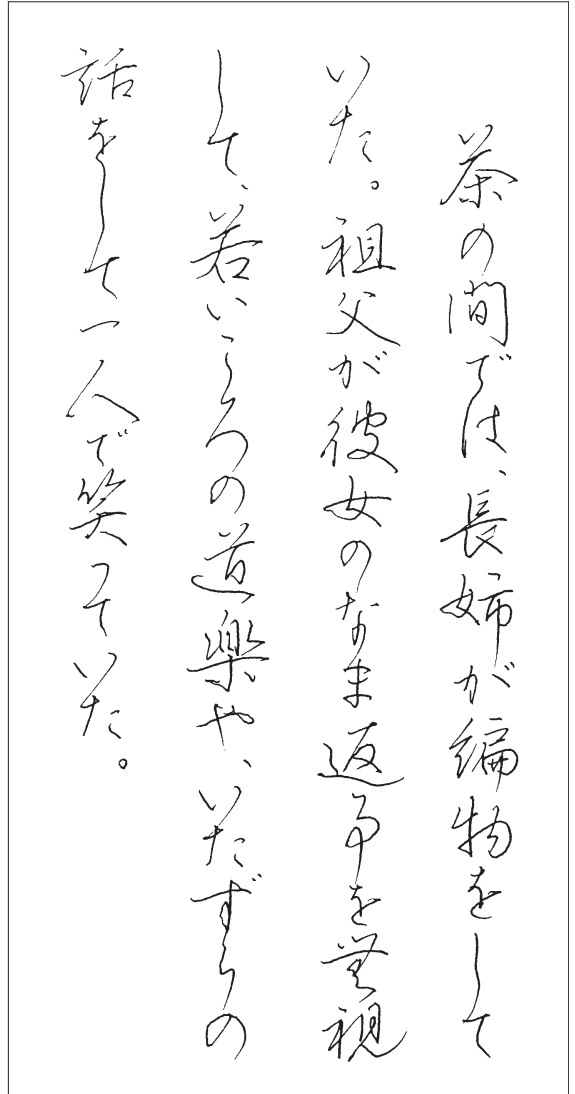 茶の間では、長姉が編物をして
いた。祖父が彼女のなま返事を無視
して、若いころの道楽や、いたずらの
話をして一人で笑っていた。